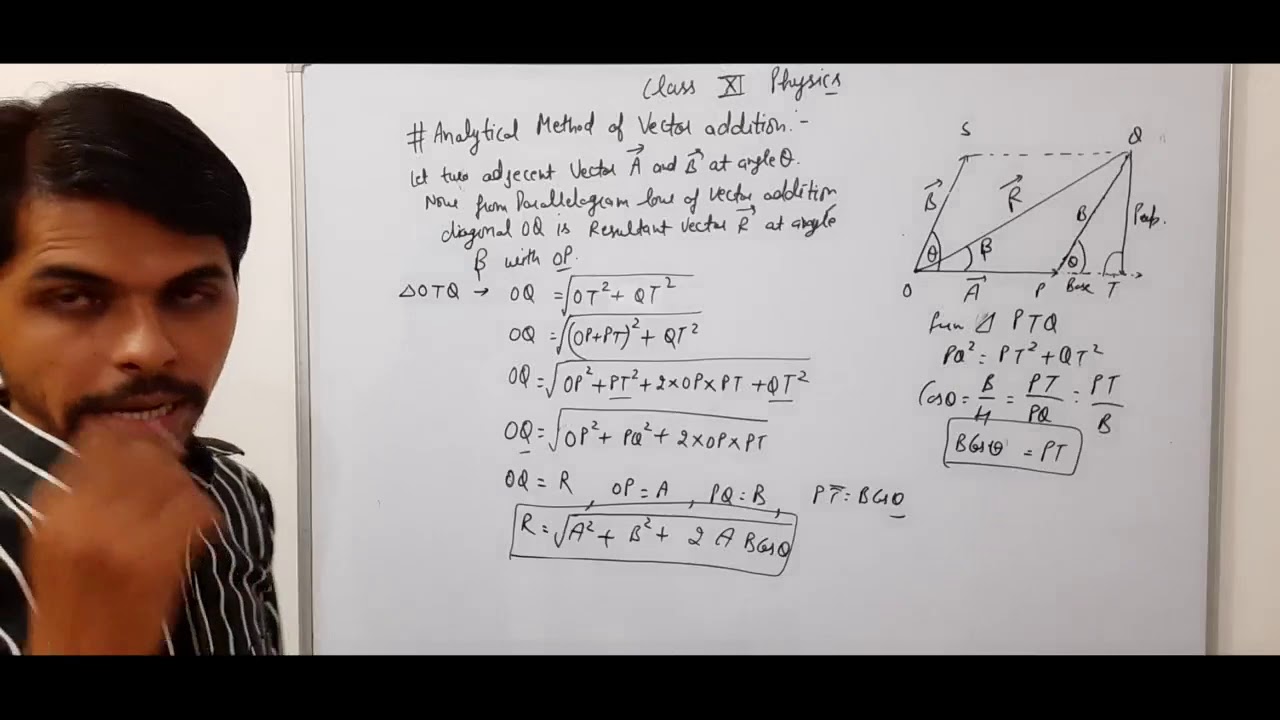 Class XI Physics
# Analytical Method of Vector addition:-
Let two adjecent Vector A⃗ and B⃗ at angle θ.
Now from Parallelogram law of vector addition
diagonal OQ is Resultant vector R⃗ at angle
β with OP.
△OTQ → OQ = √(OT² + QT²)
OQ = √((OP+PT)² + QT²)
OQ = √(OP² + PT² + 2×OP×PT + QT²)
OQ = √(OP² + PQ² + 2×OP×PT)
OQ = R , OP = A , PQ = B , PT = B Cosθ
R = √(A² + B² + 2 A B Cosθ)
S Q
B⃗ R⃗ B Perp.
θ β θ
O A⃗ P Base T
from △ PTQ
PQ² = PT² + QT²
Cosθ = B/H = PT/PQ = PT/B
B Cosθ = PT